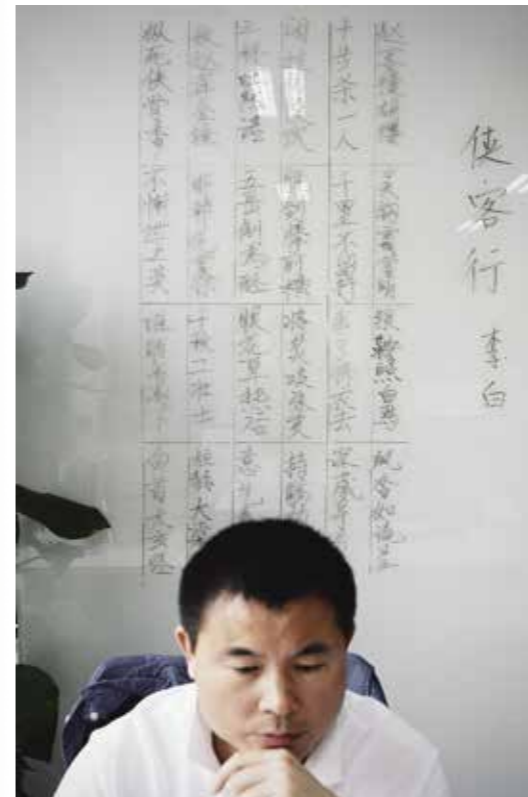 侠客行 李白
赵客缦胡缨 吴钩霜雪明 银鞍照白马 飒沓如流星
十步杀一人 千里不留行 事了拂衣去 深藏身
闲过 脱剑膝前横 将炙啖朱亥 持觞
三杯吐然诺 五岳倒为轻 眼花耳热后 意气
救赵挥金槌 邯郸先震惊 千秋二壮士 烜赫大梁
纵死侠骨香 不惭世上英 谁能书阁下 白首太玄经